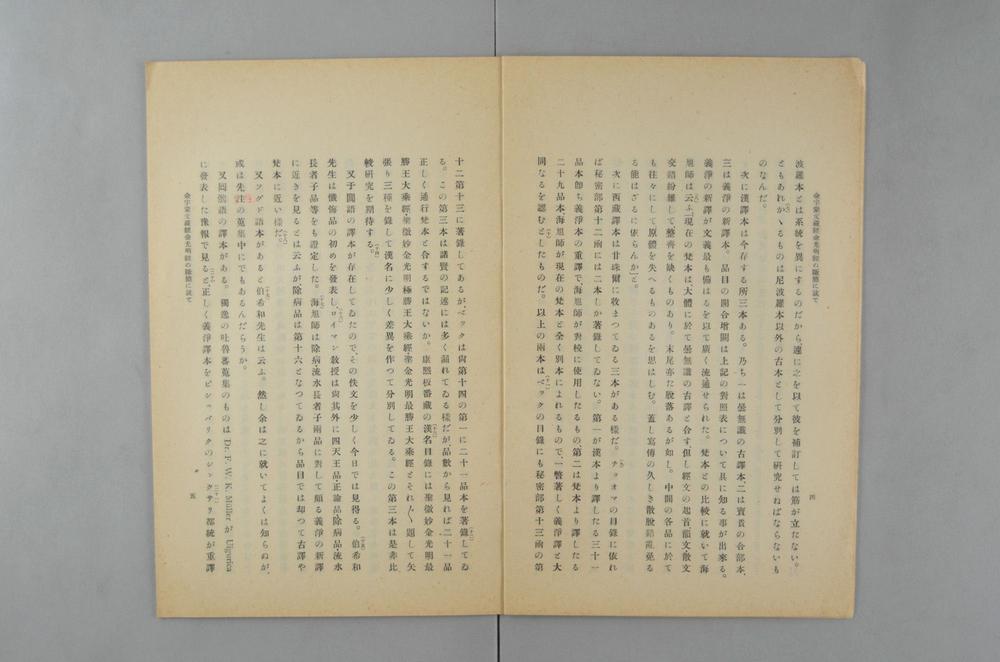 金字蒙文藏經金光明經の斷簡に就て
四
波羅本とは系統を異にするのだから遽に之を以て彼を補訂しては筋が立たない。
ともあれかゝるものは尼波羅本以外の古本として分別して研究せねばならないも
のなんだ。
次に漢譯本は今存する所三本ある。乃ち一は曇無讖の古譯本、二は寶貴の合部本、
三は義淨の新譯本。品目の開合增閒は上記の對照表について具に知る事が出來る。
義淨の新譯が文義最も備はるを以て廣く流通せられた。梵本との比較に就いて海
旭師は云ふ「現在の梵本は大體に於て曇無讖の古譯と合す、但し經文の起首韻文散文
交錯紛雜して、整齊を缺くものあり。末尾亦た脫落あるが如し。中間の各品に於て
も往々にして原體を失へるものあるを思はしむ。蓋し寫傳の久しき散脫錯亂免る
る能はざるに依らんか」と。
次に西藏譯本は甘珠爾に收まつてゐる三本がある樣だ。チョオマの目錄に依れ
ば秘密部第十二函には二本しか著錄してゐない。第一が漢本より譯したる三十一
品本卽ち義淨本の重譯で、海旭師が對校に使用したるもの、第二は梵本より譯したる
二十九品本、海旭師が現在の梵本と全く別本によれるもので、一瞥著しく義淨譯と大
同なるを認むとしたものだ。以上の兩本はベックの目錄にも秘密部第十三函の第
十二第十三に著錄してあるが、ベックは尙第十四の第一に二十一品本を著錄してゐ
る。この第三本は諸賢の記述には多く漏れてゐる樣だが、品數から見れば二十一品
正しく通行梵本と合するではないか。康熙板番藏の漢名目錄には聖微妙金光明最
勝王大乘經聖微妙金光明極勝王大乘經聖金光明最勝王大乘經とそれ〲題して矢
張り三種を錄して漢名に少しく差異を作つて分別してゐる。この第三本は是非比
較硏究を期待する。
又于闐語の譯本が存在してゐたので、その佚文を少しく今日では見得る。伯希和
先生は懺悔品の初めを發表し、ロイマン敎授は尙其外に四天王品正論品除病品流水
長者子品等をも證定した。海旭師は除病品流水長者子兩品に對して頗る義淨の新譯
に近きを見るとは云ふが、除病品は第十六となつてゐるから品目では却つて古譯や
梵本に近い樣だ。
又ソグド語本があると伯希和先生は云ふ。然し余は之に就いてよくは知らぬが、
或は先生の蒐集中にでもあるんだらうか。
又囘鶻語の譯本がある。獨逸の吐魯蕃蒐集のものは Dr. F. W. K. Müller が Uigurica
に發表した豫報で見ると、正しく義淨譯本をビシュバリクのシックサリ都統が重譯
金字蒙文藏經金光明經の斷簡に就て
五